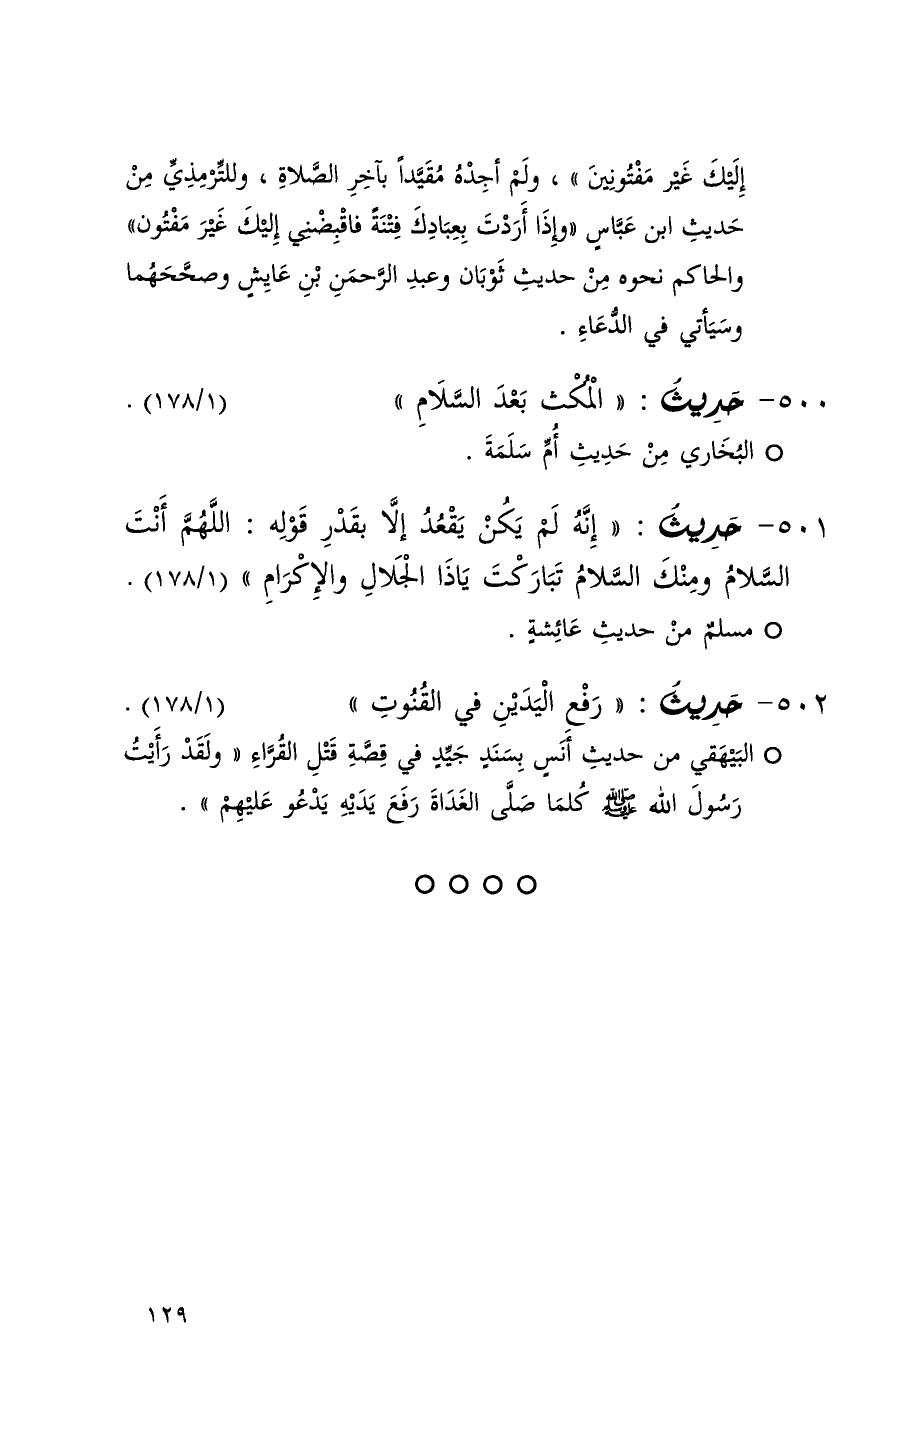 إِلَيْكَ غَيْر مَفْتُونِينَ » ، ولَمْ أجِدْهُ مُقَيَّداً بآخِرِ الصَّلاةِ ، وللتِّرْمِذِيِّ مِنْ
حَديثِ ابن عَبَّاسٍ «وإِذَا أَرَدْتَ بِعِبَادِكَ فِتْنَةً فاقْبِضْنِي إِلَيْكَ غَيْرَ مَفْتُون»
والحاكم نحوه مِنْ حديثِ ثَوْبَان وعبدِ الرَّحمَنِ بْنِ عَايِشٍ وصحَّحَهُما
وسَيَأتي في الدُّعَاءِ .
٥٠٠- حَدِيثُ : « الْمُكْث بَعْدَ السَّلَامِ » (١٧٨/١) .
○ البُخَاري مِنْ حَدِيثِ أُمِّ سَلَمَةَ .
٥٠١- حَدِيثُ : « إِنَّهُ لَمْ يَكُنْ يَقْعُدُ إلَّا بقَدْرِ قَوْلِه : اللَّهُمَّ أَنْتَ
السَّلامُ ومِنْكَ السَّلامُ تَبَارَكْتَ يَاذَا الْجَلالِ والإِكْرَامِ » (١٧٨/١) .
○ مسلمٌ منْ حديثِ عَائِشةٍ .
٥٠٢- حَدِيثُ : « رَفْعِ الْيَدَيْنِ في القُنُوتِ » (١٧٨/١) .
○ البَيْهَقي من حديثِ أَنَسٍ بِسَنَدٍ جَيِّدٍ في قِصَّةِ قَتْلِ القُرَّاءِ « ولَقَدْ رَأَيْتُ
رَسُولَ الله ﷺ كُلمَا صَلَّى الغَدَاةَ رَفَعَ يَدَيْهِ يَدْعُو عَليْهِمْ » .
○ ○ ○ ○
١٢٩